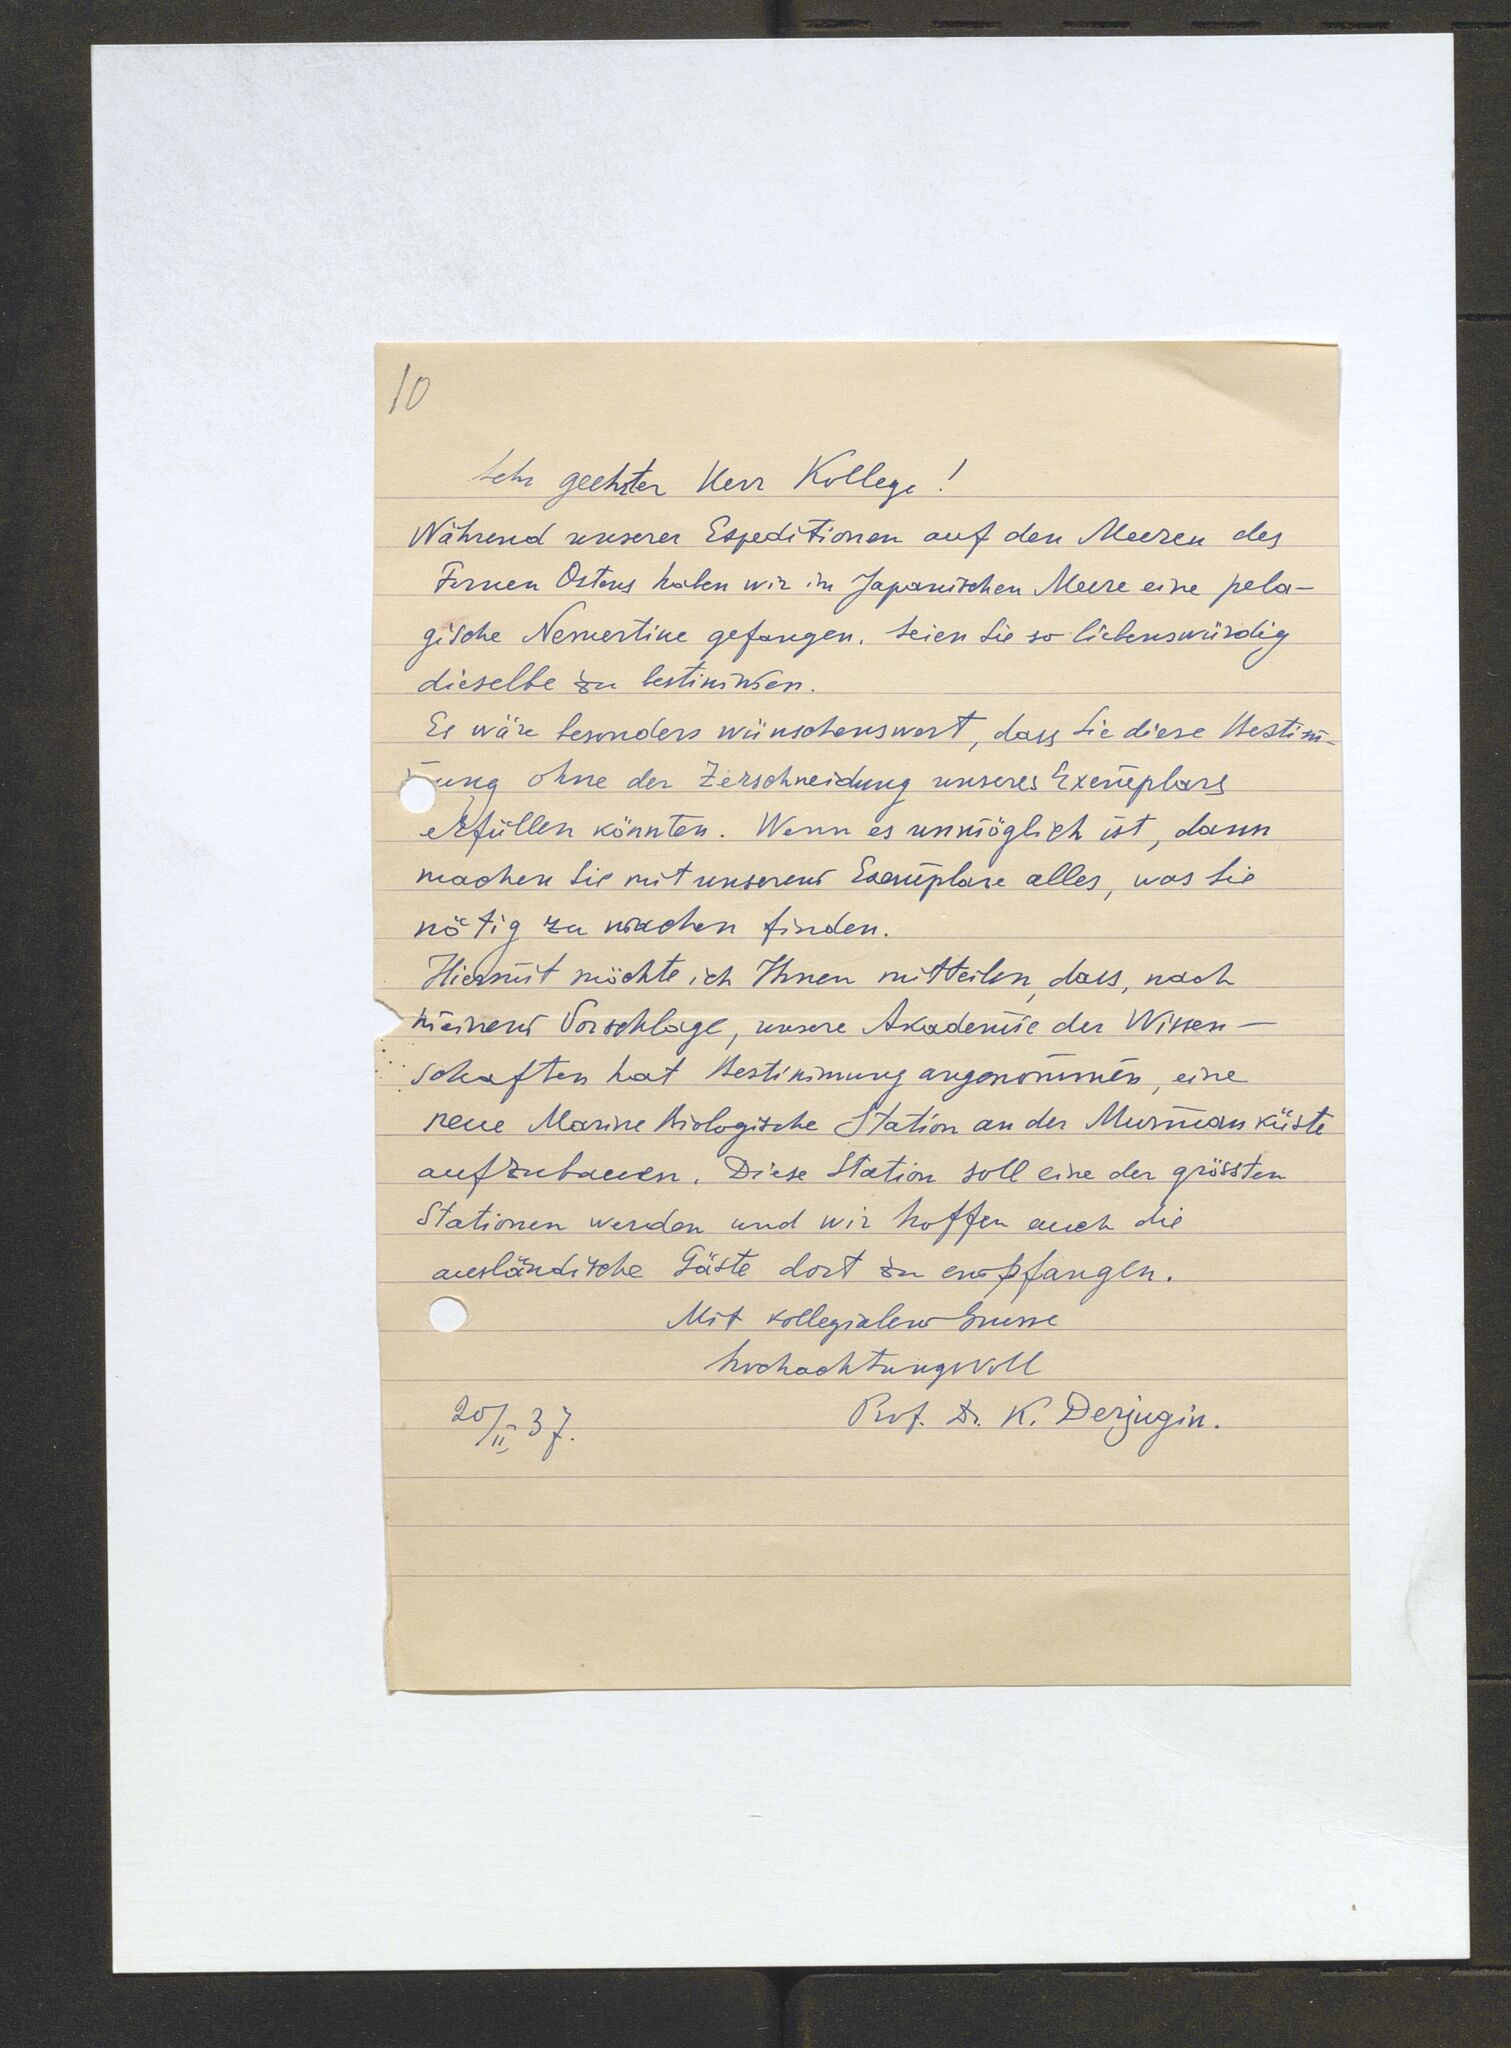 10
Sehr geehrter Herr Kollege!
Während unserer Expeditionen auf den Meeren des
Fernen Ostens haben wir im Japanischen Meere eine pela-
gische Nemertine gefangen. Seien Sie so liebenswürdig
dieselbe zu bestimmen.
Es wäre besonders wünschenswert, dass Sie diese Bestim-
mung ohne der Zerschneidung unseres Exemplars
erfüllen könnten. Wenn es unmöglich ist, dann
machen Sie mit unserem Exemplare alles, was Sie
nötig zu machen finden.
Hiermit möchte ich Ihnen mitteilen, dass, nach
meinem Vorschlage, unsere Akademie der Wissen-
schaften hat Bestimmung angenommen, eine
neue Marine Biologische Station an der Murmanküste
aufzubauen. Diese Station soll eine der grössten
Stationen werden und wir hoffen auch die
ausländische Gäste dort zu empfangen.
Mit kollegialem Grusse
hochachtungsvoll
20/II 37. Prof. Dr. K. Derjugin.